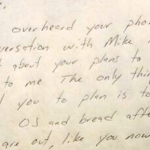 overheard your phon
versation with Mike
about your plans to
to me The only thin
d you to plan is to
OJ and bread afte
are out, like you now